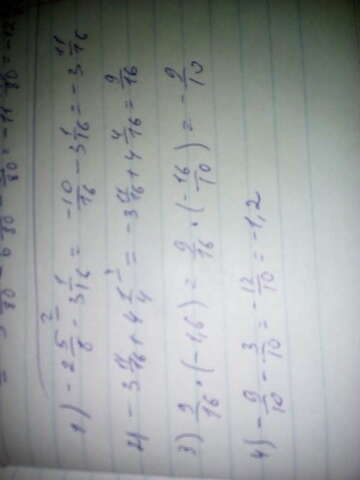 1) -2 5/8 - 3 1/16 = -10/16 - 3 1/16 = -3 11/16
2) -3 11/16 + 4 1/4 = -3 11/16 + 4 4/16 = 9/16
3) 9/16 · (-1,6) = 9/16 · (-16/10) = -9/10
4) -9/10 - 3/10 = -12/10 = -1,2